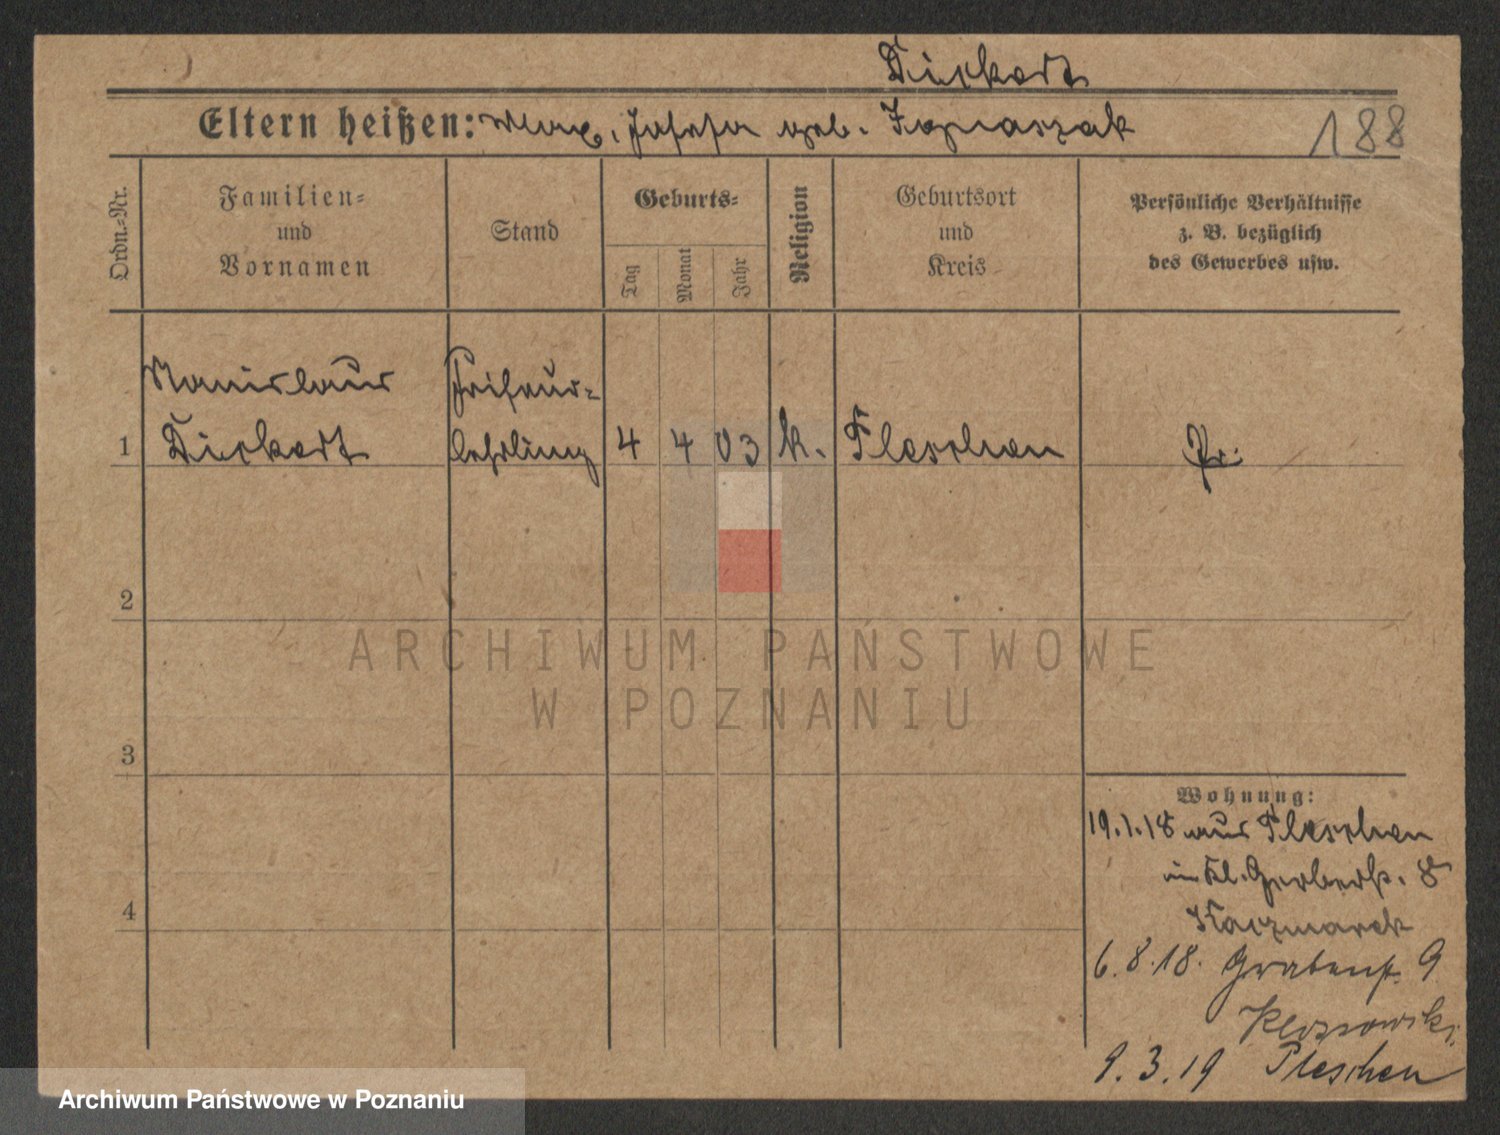 Dierkert
Eltern heißen: Max, Josefa geb. Ignaszak
188
Ordn.-Nr.
Familien-
und
Vornamen
Stand
Geburts-
Tag
Monat
Jahr
Religion
Geburtsort
und
Kreis
Persönliche Verhältnisse
z. B. bezüglich
des Gewerbes usw.
Stanislaus Friseur-
1 lehrling 4 4 03 k. Pleschen Pr.
2
3
4
Wohnung:
19.1.18 aus Pleschen
in Kl. Gerberstr. 8
Kaczmarek
6.8.18. Grabenstr. 9
9.3.19 Pleschen
ARCHIWUM PAŃSTWOWE
W POZNANIU
Archiwum Państwowe w Poznaniu